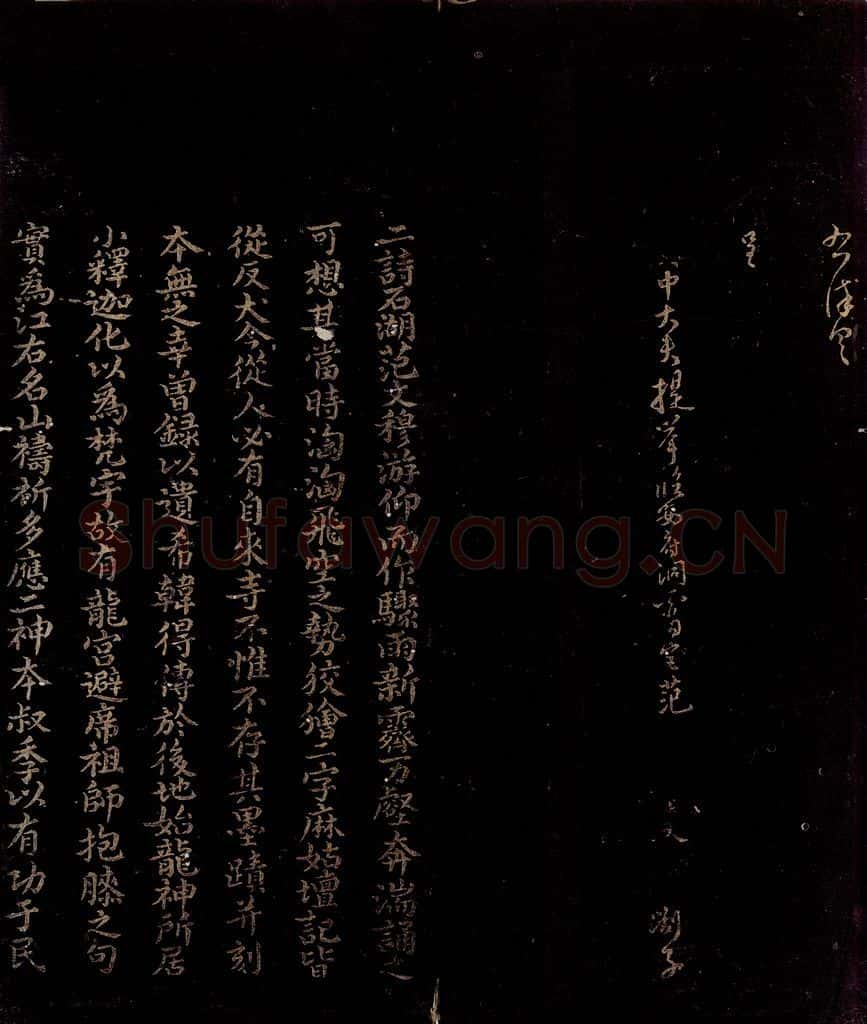 呈
中大夫提舉
范
劄子
二詩石湖范文穆游仰而作驟雨新霽万壑奔湍誦之
可想其當時洶洶飛空之勢狡獪二字麻姑壇記皆
從反犬今從人必有自來寺不惟不存其墨蹟并刻
本無之幸曽録以遺希韓得傳於後地始龍神所居
小釋迦化以為梵宇故有龍宫避席祖師抱膝之句
實為江右名山禱祈多應二神本叔季以有功于民
Shufawang.CN